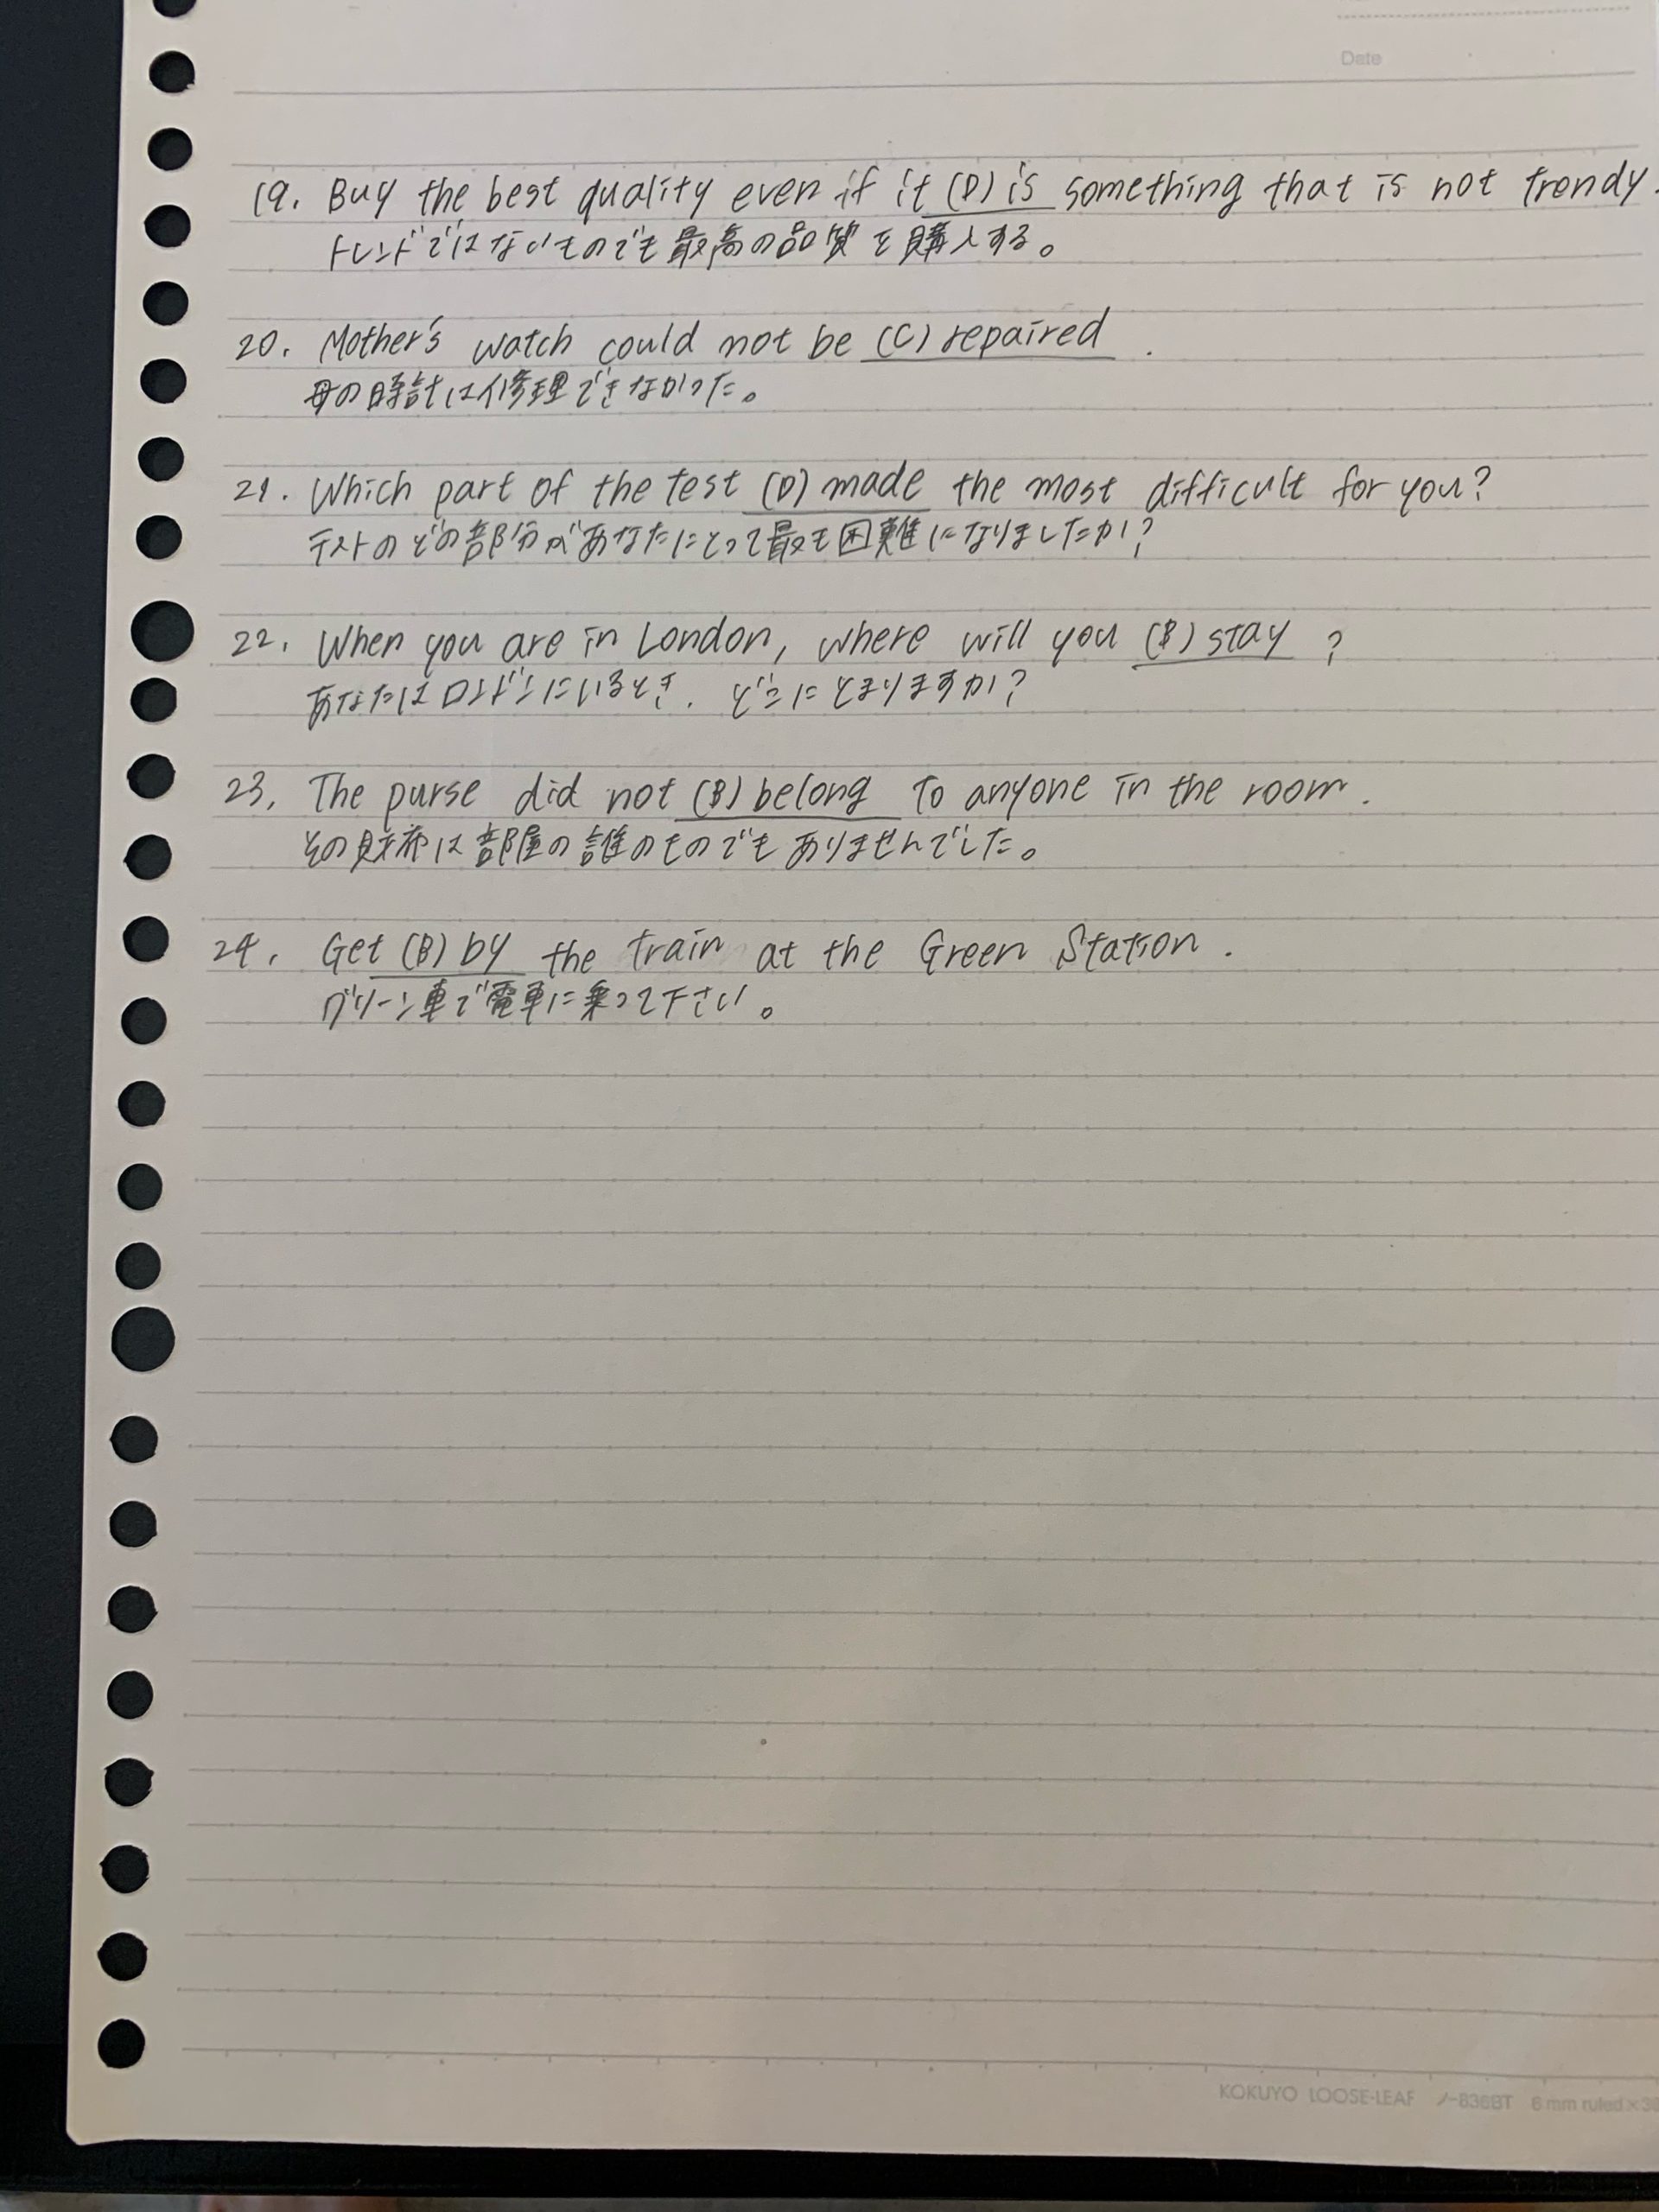 Date
19. Buy the best quality even if it (D) is something that is not trendy.
トレンドではないものでも最高の品質を購入する。
20. Mother's watch could not be (C) repaired .
母の時計は修理できなかった。
21. Which part of the test (D) made the most difficult for you?
テストのどの部分があなたにとって最も困難になりましたか?
22. When you are in London, where will you (B) stay ?
あなたはロンドンにいるとき、どこにとまりますか?
23. The purse did not (B) belong to anyone in the room.
その財布は部屋の誰のものでもありませんでした。
24. Get (B) by the train at the Green Station.
グリーン車で電車に乗って下さい。
KOKUYO LOOSE-LEAF ノ-836BT 6 mm ruled